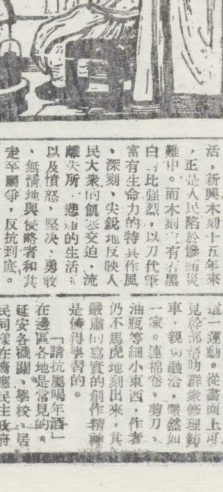 活，新興木刻十五年來
，正是人民陷於慘痛災
難中。而木刻之有着黑
白對比強烈，以刀代筆
富有生命力的特具作風
、深刻、尖銳地反映人
民大衆的飢寒交迫，流
離失所、悲慟的生活；
以及憤怒、堅決、勇敢
、無情地與侵略者和其
走卒鬬爭，反抗到底。
這一運動。從畫面上可
見幹部活動群衆修理紡
車，親切融洽，儼然如
一家。連棉卷、剪刀、
油瓶等細小東西，作者
仍不馬虎地刻出來，其
嚴肅的寫實的創作精神
是值得學習的。
「請抗屬喝年酒」
在邊區各地是常見的。
延安各機關、學校、居
民同樣在響應民主政府